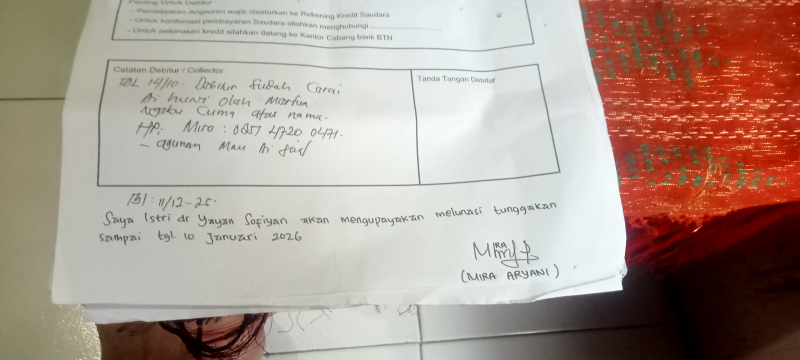 Penting Untuk Debitur
- Pembayaran Angsuran wajib disetorkan ke Rekening Kredit Saudara
- Untuk konfirmasi pembayaran Saudara silahkan menghubungi
- Untuk pelunasan kredit silahkan datang ke Kantor Cabang bank BTN
Catatan Debitur / Collector
Tanda Tangan Debitur
14/10. Debitur Sudah Cerai
Di huni oleh Mertua
Cuma atas nama.
HP. Mira : 0857 4720 0471.
- agunan Mau Di jual
11/12-25.
Saya Istri dr Yayan Sofiyan akan mengupayakan melunasi tunggakan
sampai tgl 10 Januari 2026
(MIRA ARYANI)